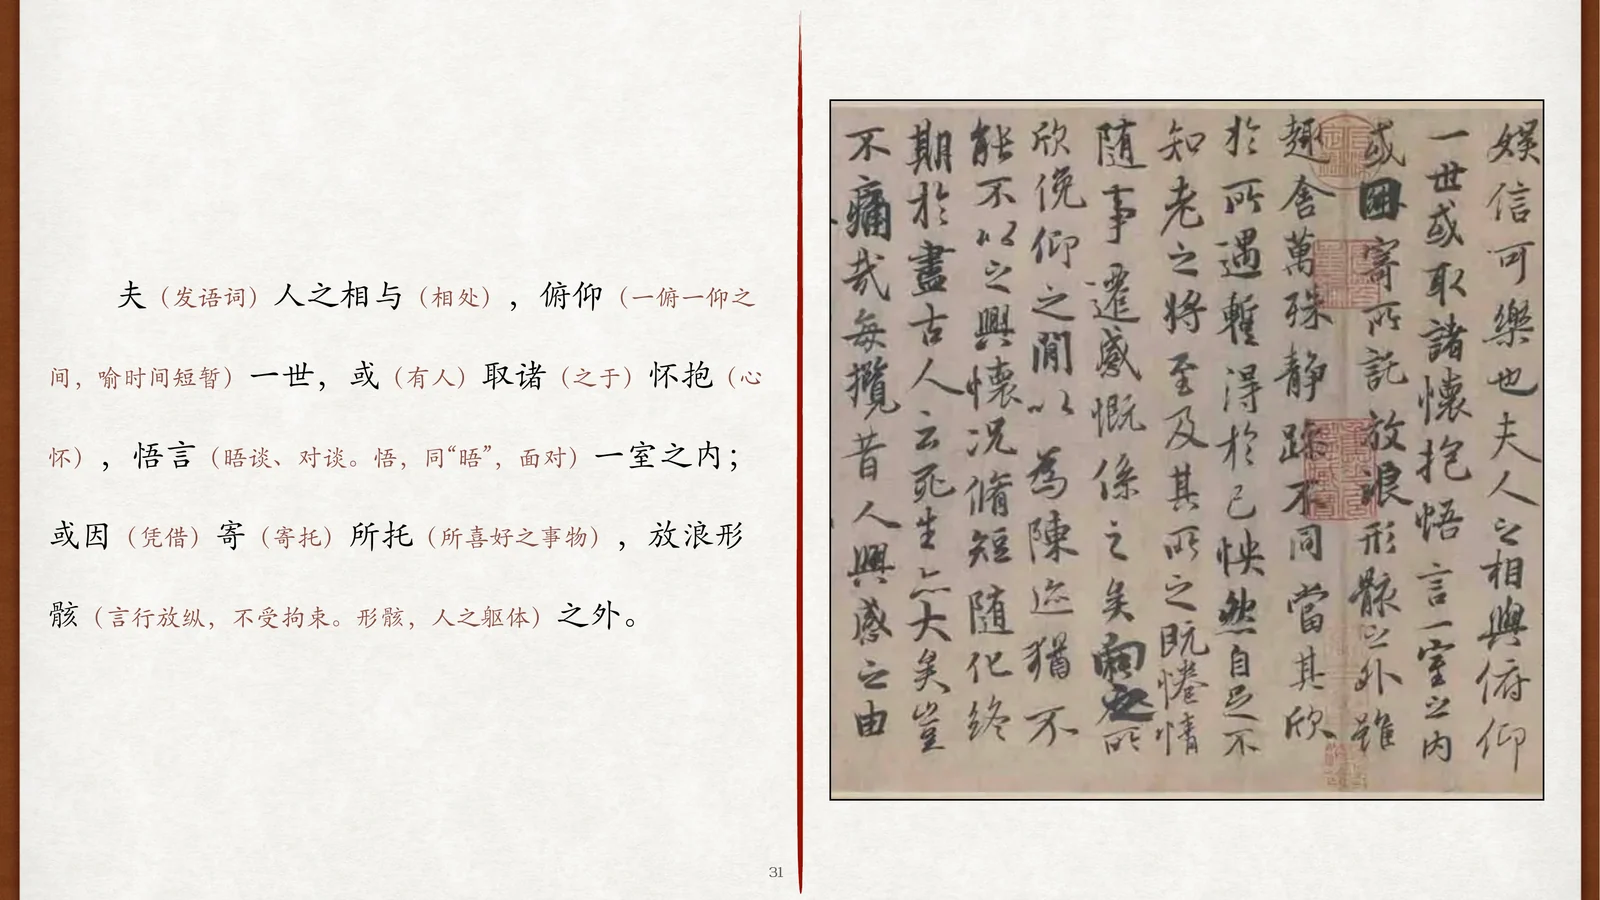 夫（发语词）人之相与（相处），俯仰（一俯一仰之
间，喻时间短暂）一世，或（有人）取诸（之于）怀抱（心
怀），悟言（晤谈、对谈。悟，同“晤”，面对）一室之内；
或因（凭借）寄（寄托）所托（所喜好之事物），放浪形
骸（言行放纵，不受拘束。形骸，人之躯体）之外。
31
娱信可樂也夫人之相與俯仰
一世或取諸懷抱悟言一室之内
或因寄所託放浪形骸之外雖
趣舍萬殊静躁不同當其欣
於所遇暫得於己怏然自足不
知老之將至及其所之既惓情
随事遷感慨係之矣向之所
欣俛仰之間以為陳迹猶不
能不以之興懷況脩短随化終
期於盡古人云死生亦大矣豈
不痛哉每攬昔人興感之由